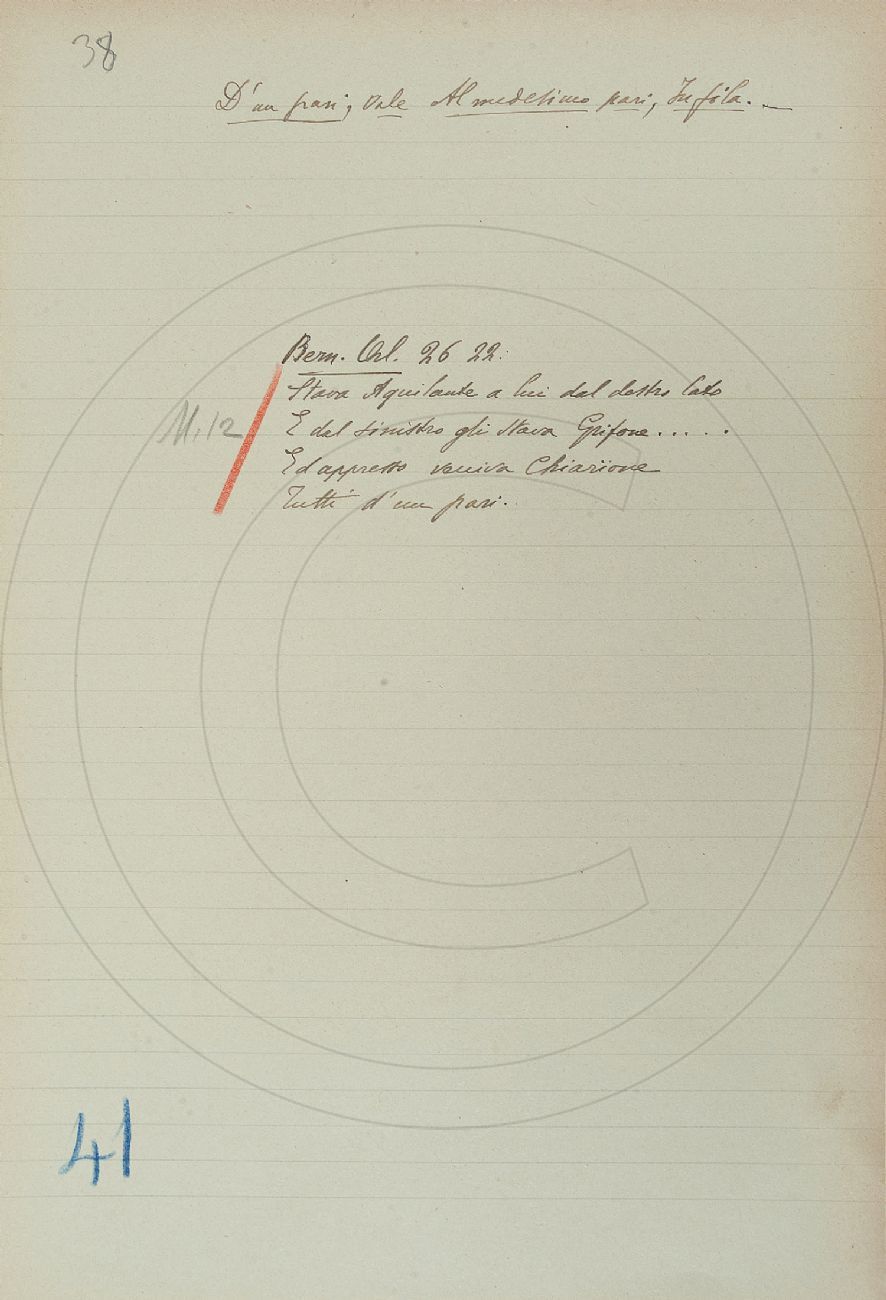 38
D'un pari, Vale Al medesimo pari, In fila. —
Bern. Orl. 26 22.
Stava Aquilante a lui dal destro lato
M. 12
E dal sinistro gli stava Grifone.....
Ed appresso veniva Chiarione
Tutti d'un pari.
41